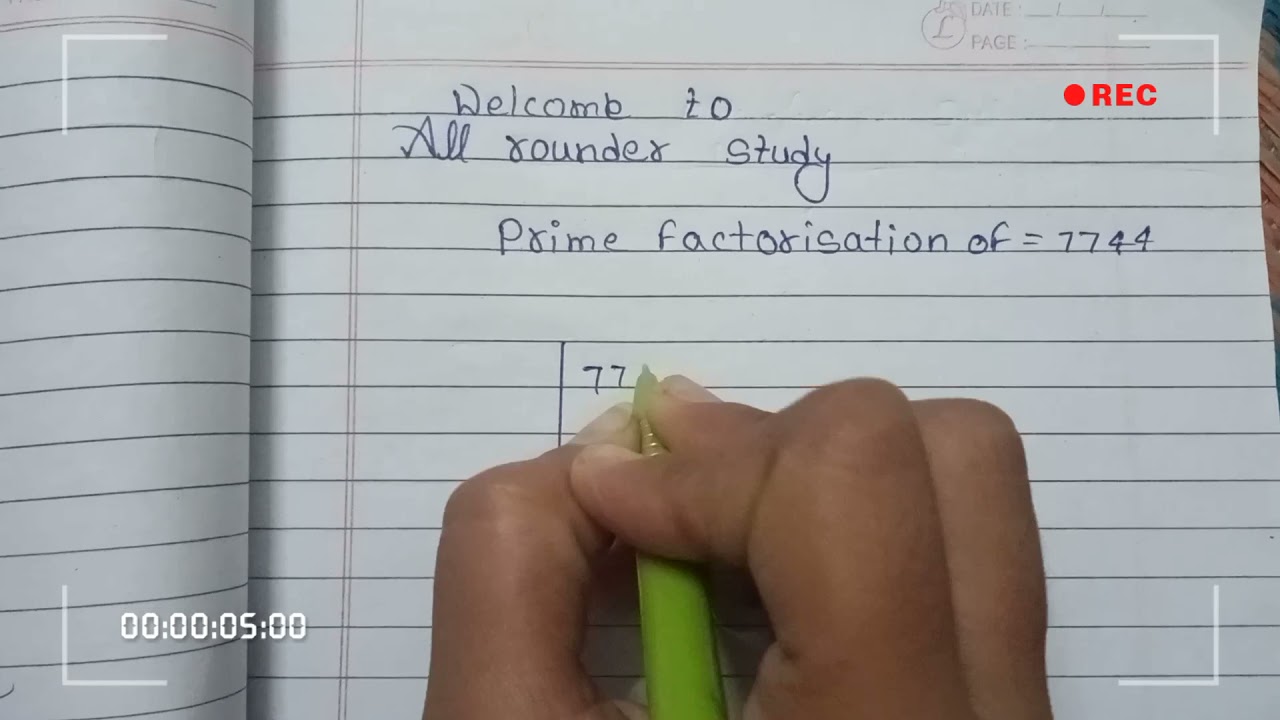 DATE : __/__/__
PAGE :
REC
Welcome to
All rounder study
Prime factorisation of = 7744
77
00:00:05:00